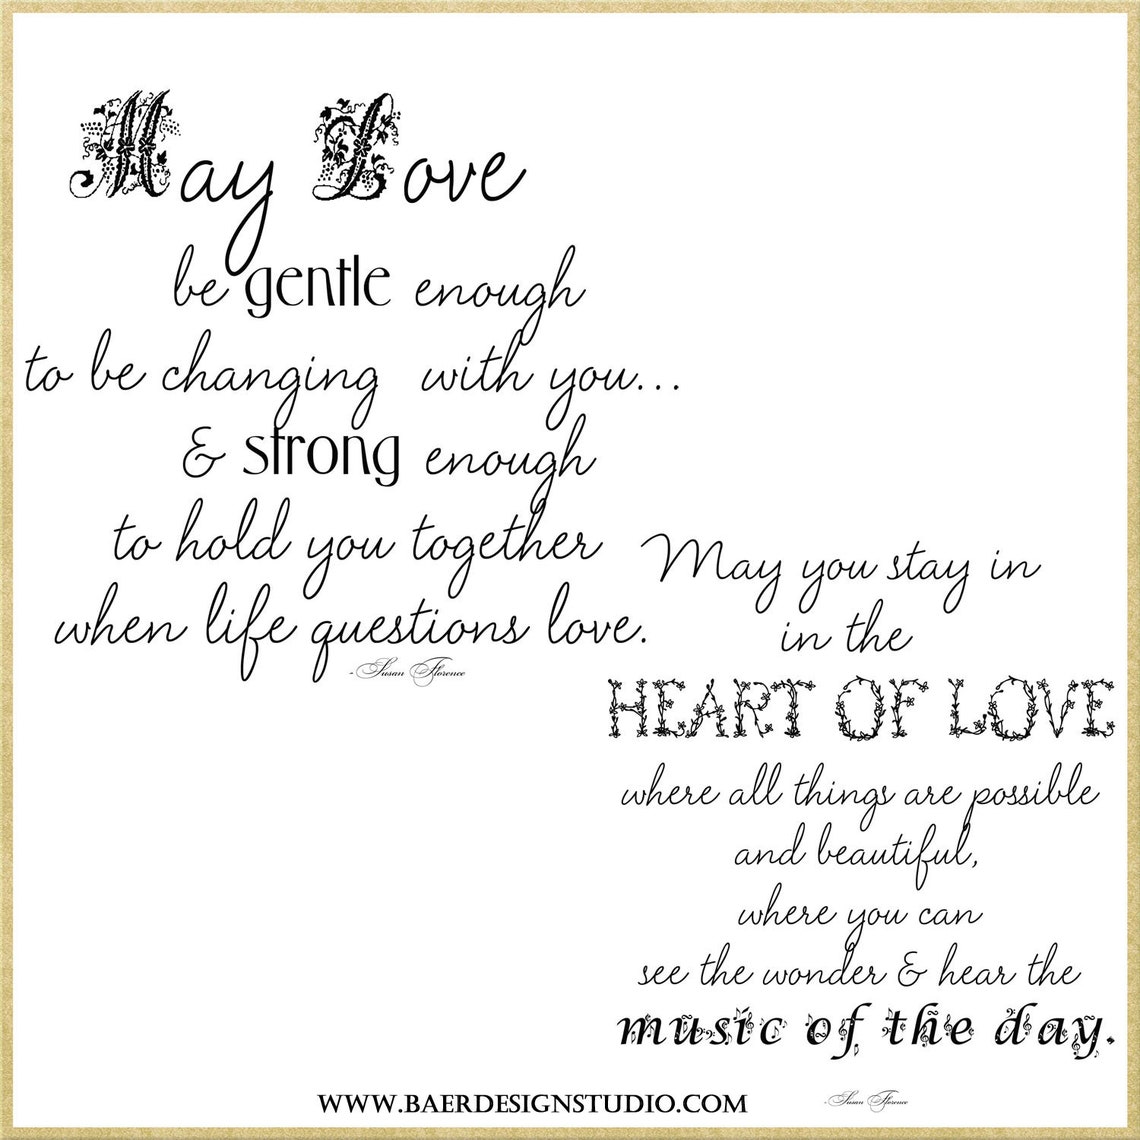 May Love
be gentle enough
to be changing with you...
& strong enough
to hold you together
when life questions love.
- Susan Florence
May you stay in
in the
HEART OF LOVE
where all things are possible
and beautiful,
where you can
see the wonder & hear the
music of the day.
- Susan Florence
WWW.BAERDESIGNSTUDIO.COM